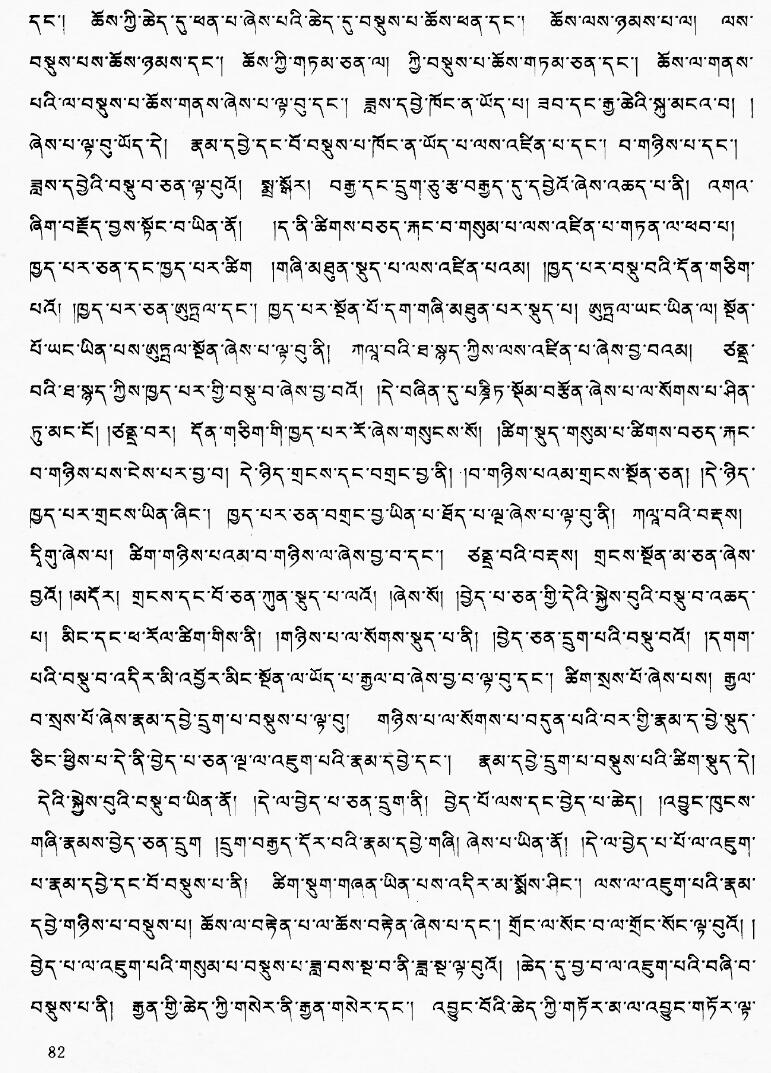 དང་། ཆོས་ཀྱི་ཆེད་དུ་ཕན་པ་ཞེས་པའི་ཆེད་དུ་བསྡུས་པ་ཆོས་ཕན་དང་། ཆོས་ལས་ཉམས་པ་ལ། ལས་
བསྡུས་པས་ཆོས་ཉམས་དང་། ཆོས་ཀྱི་གཏམ་ཅན་ལ། ཀྱི་བསྡུས་པ་ཆོས་གཏམ་ཅན་དང་། ཆོས་ལ་གནས་
པའི་ལ་བསྡུས་པ་ཆོས་གནས་ཞེས་པ་ལྟ་བུ་དང་། ཟླས་དབྱེ་ཁོང་ན་ཡོད་པ། ཟབ་དང་རྒྱ་ཆེའི་སྐུ་མངའ་བ། །
ཞེས་པ་ལྟ་བུ་ཡོད་དེ། རྣམ་དབྱེ་དང་པོ་བསྡུས་པ་ཁོང་ན་ཡོད་པ་ལས་འཛིན་པ་དང་། བ་གཉིས་པ་དང་།
ཟླས་དབྱེའི་བསྡུ་བ་ཅན་ལྟ་བུའོ། སྨྲ་སྒོར། བརྒྱ་དང་དྲུག་ཅུ་རྩ་བརྒྱད་དུ་དབྱེའོ་ཞེས་འཆད་པ་ནི། འགའ་
ཞིག་བརྗོད་བྱས་སྟོང་བ་ཡིན་ནོ། །ད་ནི་ཚིགས་བཅད་རྐང་བ་གསུམ་པ་ལས་འཛིན་པ་གཏན་ལ་ཕབ་པ།
ཁྱད་པར་ཅན་དང་ཁྱད་པར་ཚིག །གཞི་མཐུན་སྡུད་པ་ལས་འཛིན་པའམ། །ཁྱད་པར་བསྡུ་བའི་དོན་གཅིག་
པའོ། །ཁྱད་པར་ཅན་ཨུཏྤལ་དང་། ཁྱད་པར་སྔོན་པོ་དག་གཞི་མཐུན་པར་སྡུད་པ། ཨུཏྤལ་ཡང་ཡིན་ལ། སྔོན་
པོ་ཡང་ཡིན་པས་ཨུཏྤལ་སྔོན་ཞེས་པ་ལྟ་བུ་ནི། ཀལཱ་བའི་ཐ་སྙད་ཀྱིས་ལས་འཛིན་པ་ཞེས་བྱ་བའམ། ཙནྡྲ་
བའི་ཐ་སྙད་ཀྱིས་ཁྱད་པར་གྱི་བསྡུ་བ་ཞེས་བྱ་བའོ། །དེ་བཞིན་དུ་པཎྜིཏ་སྡོམ་བརྩོན་ཞེས་པ་ལ་སོགས་པ་ཤིན་
ཏུ་མང་ངོ། །ཙནྡྲ་བར། དོན་གཅིག་གི་ཁྱད་པར་རོ་ཞེས་གསུངས་སོ། །ཚིག་སྡུད་གསུམ་པ་ཚིགས་བཅད་རྐང་
བ་གཉིས་པས་ངེས་པར་བྱ་བ། དེ་ཉིད་གྲངས་དང་བགྲང་བྱ་ནི། །བ་གཉིས་པའམ་གྲངས་སྔོན་ཅན། །དེ་ཉིད་
ཁྱད་པར་གྲངས་ཡིན་ཞིང་། ཁྱད་པར་ཅན་བགྲང་བྱ་ཡིན་པ་ཐོད་པ་ལྔ་ཞེས་པ་ལྟ་བུ་ནི། ཀལཱ་བའི་བརྡས།
དྭིགུ་ཞེས་པ། ཚིག་གཉིས་པའམ་བ་གཉིས་ལ་ཞེས་བྱ་བ་དང་། ཙནྡྲ་བའི་བརྡས། གྲངས་སྔོན་མ་ཅན་ཞེས་
བྱའོ། །མདོར། གྲངས་དང་པོ་ཅན་ཀུན་སྡུད་པ་ལའོ། །ཞེས་སོ། །བྱེད་པ་ཅན་གྱི་དེའི་སྐྱེས་བུའི་བསྡུ་བ་འཆད་
པ། མིང་དང་ཕ་རོལ་ཚིག་གིས་ནི། །གཉིས་པ་ལ་སོགས་སྡུད་པ་ནི། །བྱེད་ཅན་དྲུག་པའི་བསྡུ་བའོ། །དགག་
པའི་བསྡུ་བ་འདིར་མི་འབྱོར་མིང་སྔོན་ལ་ཡོད་པ་རྒྱལ་བ་ཞེས་བྱ་བ་ལྟ་བུ་དང་། ཚིག་སྲས་པོ་ཞེས་པས། རྒྱལ་
བ་སྲས་པོ་ཞེས་རྣམ་དབྱེ་དྲུག་པ་བསྡུས་པ་ལྟ་བུ། གཉིས་པ་ལ་སོགས་པ་བདུན་པའི་བར་གྱི་རྣམ་དབྱེ་སྡུད་
ཅིང་ཕྱིས་པ་དེ་ནི་བྱེད་པ་ཅན་ལྔ་ལ་འཇུག་པའི་རྣམ་དབྱེ་དང་། རྣམ་དབྱེ་དྲུག་པ་བསྡུས་པའི་ཚིག་སྡུད་དེ།
དེའི་སྐྱེས་བུའི་བསྡུ་བ་ཡིན་ནོ། །དེ་ལ་བྱེད་པ་ཅན་དྲུག་ནི། བྱེད་པོ་ལས་དང་བྱེད་པ་ཆེད། །འབྱུང་ཁུངས་
གཞི་རྣམས་བྱེད་ཅན་དྲུག །དྲུག་བརྒྱད་དོར་བའི་རྣམ་དབྱེ་གཞི། ཞེས་པ་ཡིན་ནོ། །དེ་ལ་བྱེད་པ་པོ་ལ་འཇུག་
པ་རྣམ་དབྱེ་དང་པོ་བསྡུས་པ་ནི། ཚིག་སྡུག་གཞན་ཡིན་པས་འདིར་མ་སྨོས་ཤིང་། ལས་ལ་འཇུག་པའི་རྣམ་
དབྱེ་གཉིས་པ་བསྡུས་པ། ཆོས་ལ་བརྟེན་པ་ལ་ཆོས་བརྟེན་ཞེས་པ་དང་། གྲོང་ལ་སོང་བ་ལ་གྲོང་སོང་ལྟ་བུའོ། །
བྱེད་པ་ལ་འཇུག་པའི་གསུམ་པ་བསྡུས་པ་ཟླ་བས་སྔ་བ་ནི་ཟླ་སྔ་ལྟ་བུའོ། །ཆེད་དུ་བྱ་བ་ལ་འཇུག་པའི་བཞི་བ་
བསྡུས་པ་ནི། རྒྱན་གྱི་ཆེད་ཀྱི་གསེར་ནི་རྒྱན་གསེར་དང་། འབྱུང་པོའི་ཆེད་ཀྱི་གཏོར་མ་ལ་འབྱུང་གཏོར་ལྟ་
82